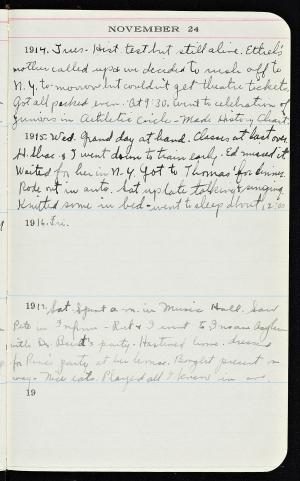 NOVEMBER 24
1914. Tues. Hist. test but still alive. Ethel's
mother called up & we decided to rush off to
N.Y. to-morrow but couldn't get theatre tickets
Got all packed even. At 9:30 went to celebration of
Juniors in Athletic Circle - Made History Chart
1915. Wed. Grand day at hand. Classes at last over
& I went down to train early. Ed missed it
Waited for her in N.Y. Got to Thomas' for dinner.
Rode out in auto. Sat up late talking & singing
Knitted some in bed - went to sleep about 12:00
1916. Fri.
1917. Sat. Spent a.m. in Music Hall. Saw
Pete in - & I went to Insane Asylum
with Dr. party. Hastened home. dressed
for party at her home. Bought present on
way - Nice eats. Played all I knew in
19